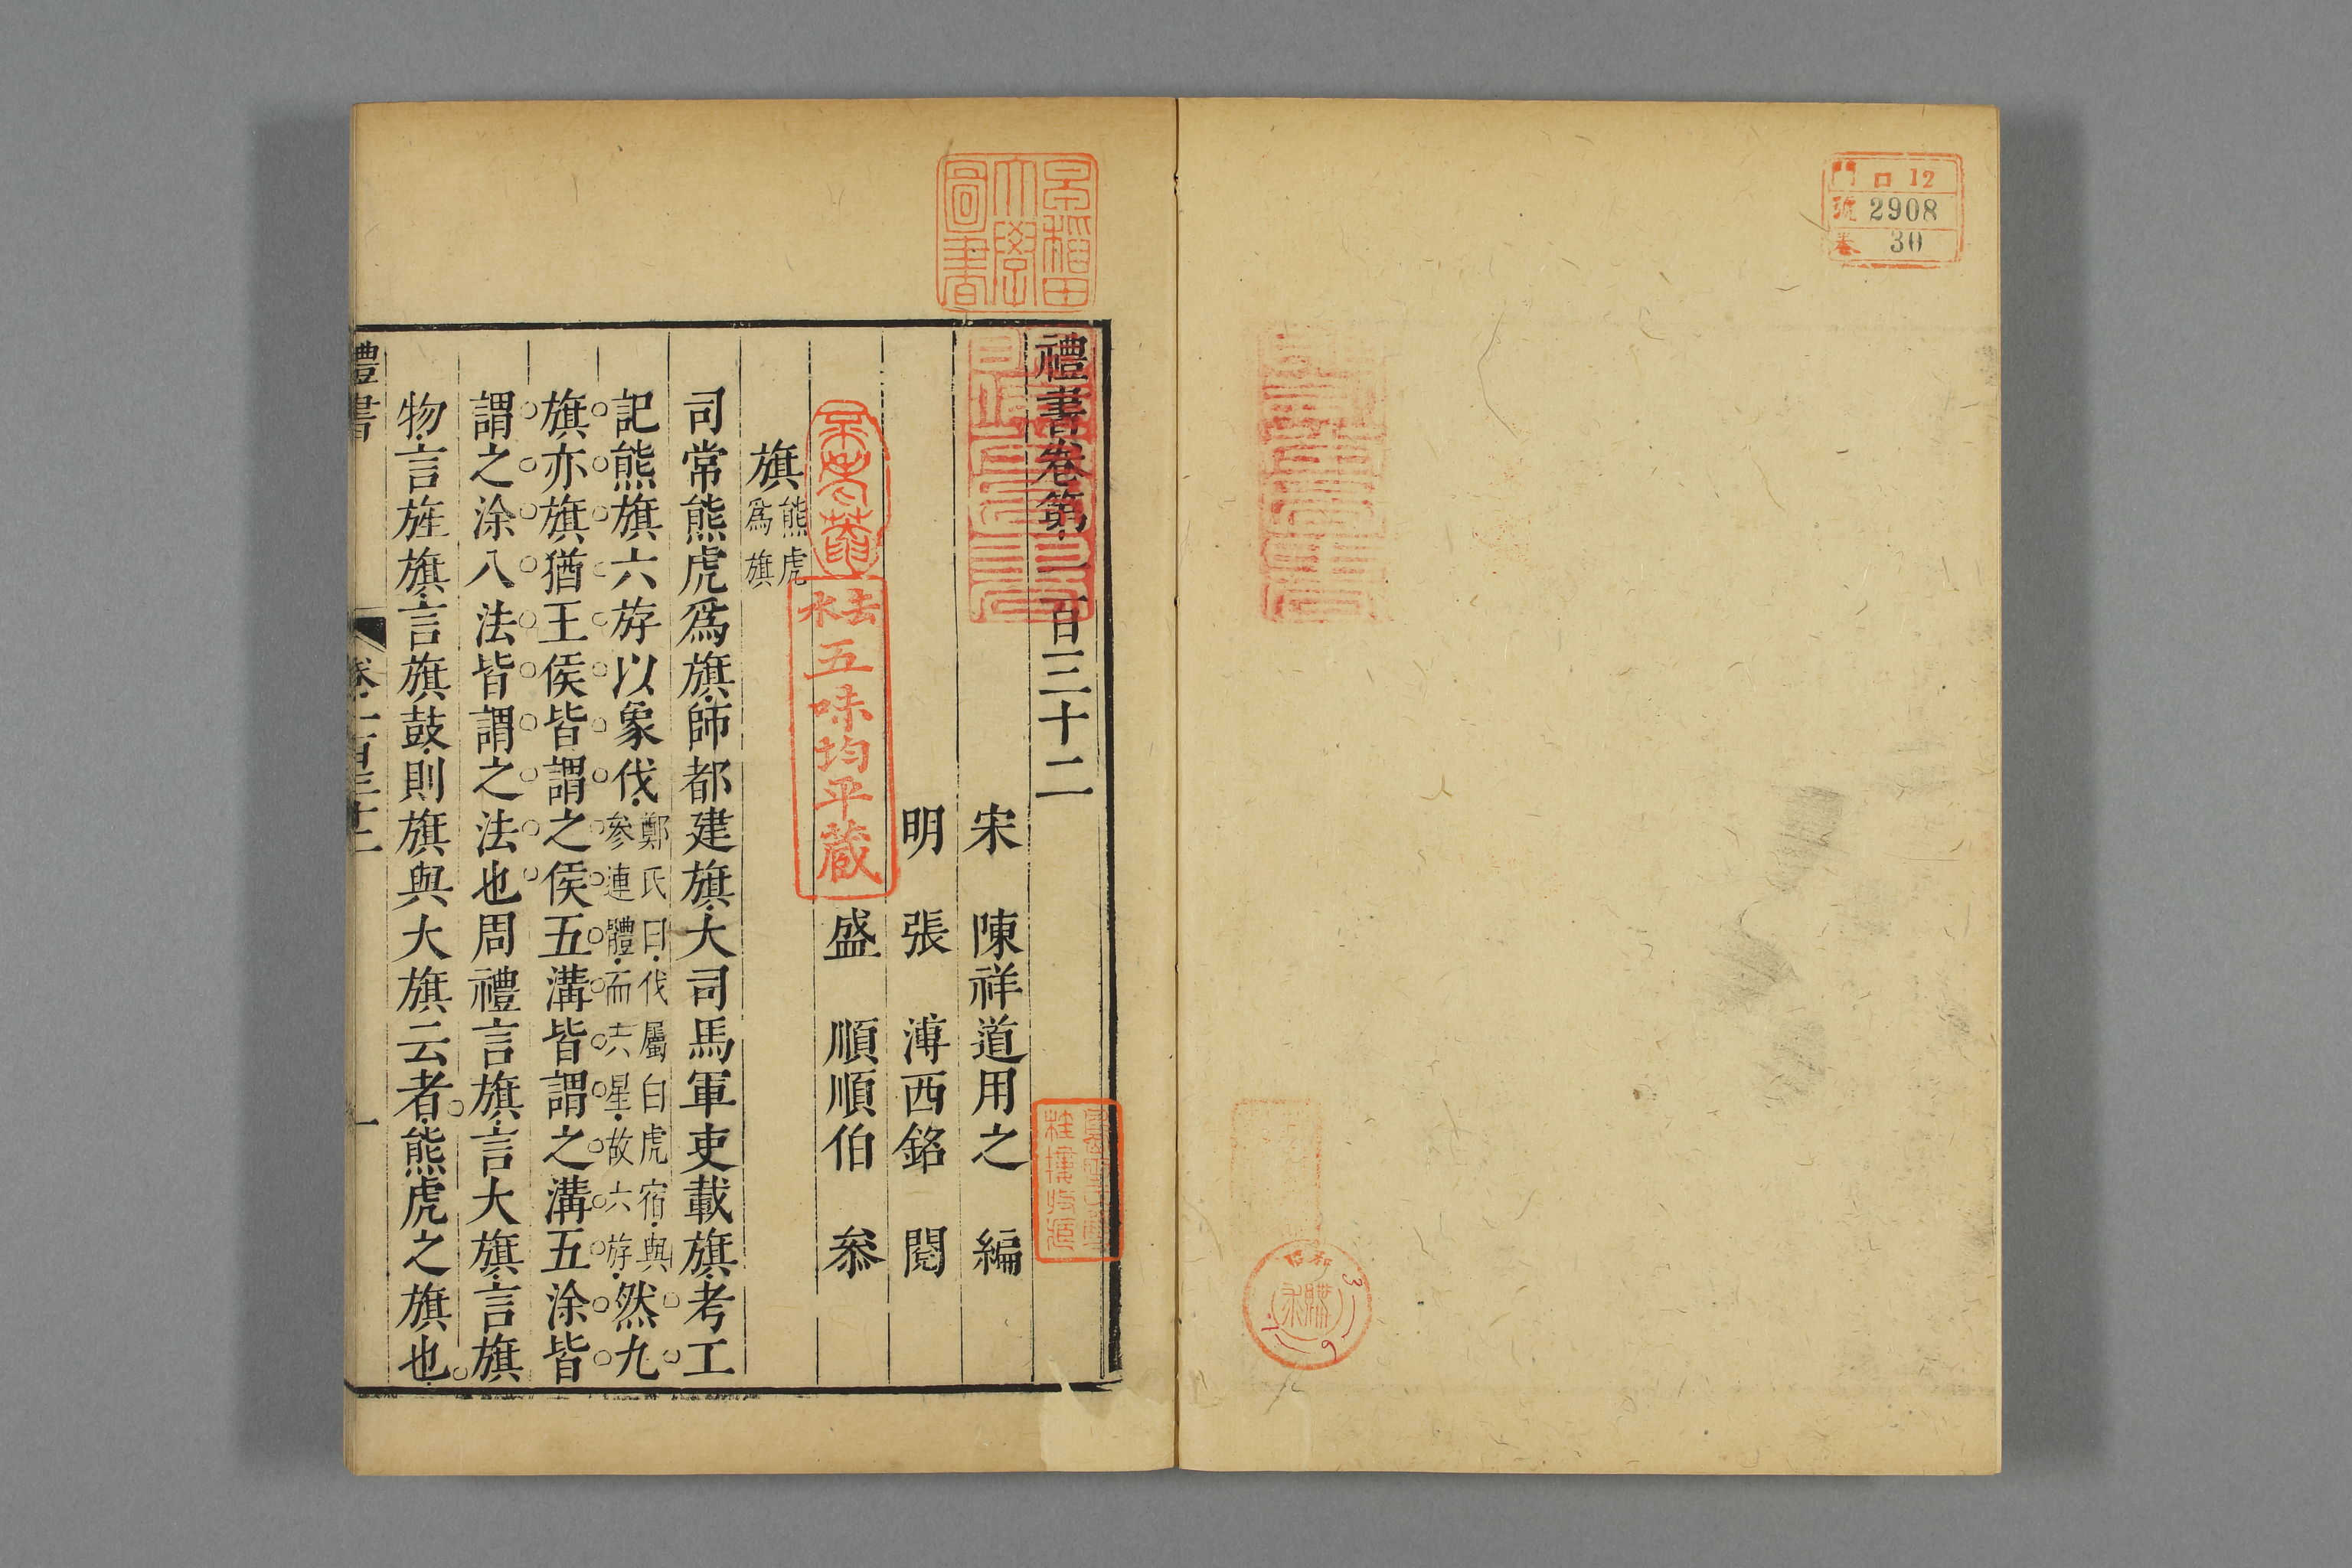 門 ロ 12
號 2908
卷 30
昭和
購求
早稲田
大學
圖書
禮書卷第一百三十二
宋 陳祥道用之 編
明 張 溥西銘 閱
盛 順順伯 叅
去水
五味均平藏
旗 熊虎
爲旗
司常熊虎爲旗師都建旗大司馬軍吏載旗考工
記熊旗六斿以象伐 鄭氏曰伐屬白虎宿與
參連體而六星故六斿 然九
旗亦旗猶王侯皆謂之侯五溝皆謂之溝五涂皆
謂之涂八法皆謂之法也周禮言旗言大旗言旗
物言旌旗言旗鼓則旗與大旗云者熊虎之旗也
禮書 卷一百三十二 一